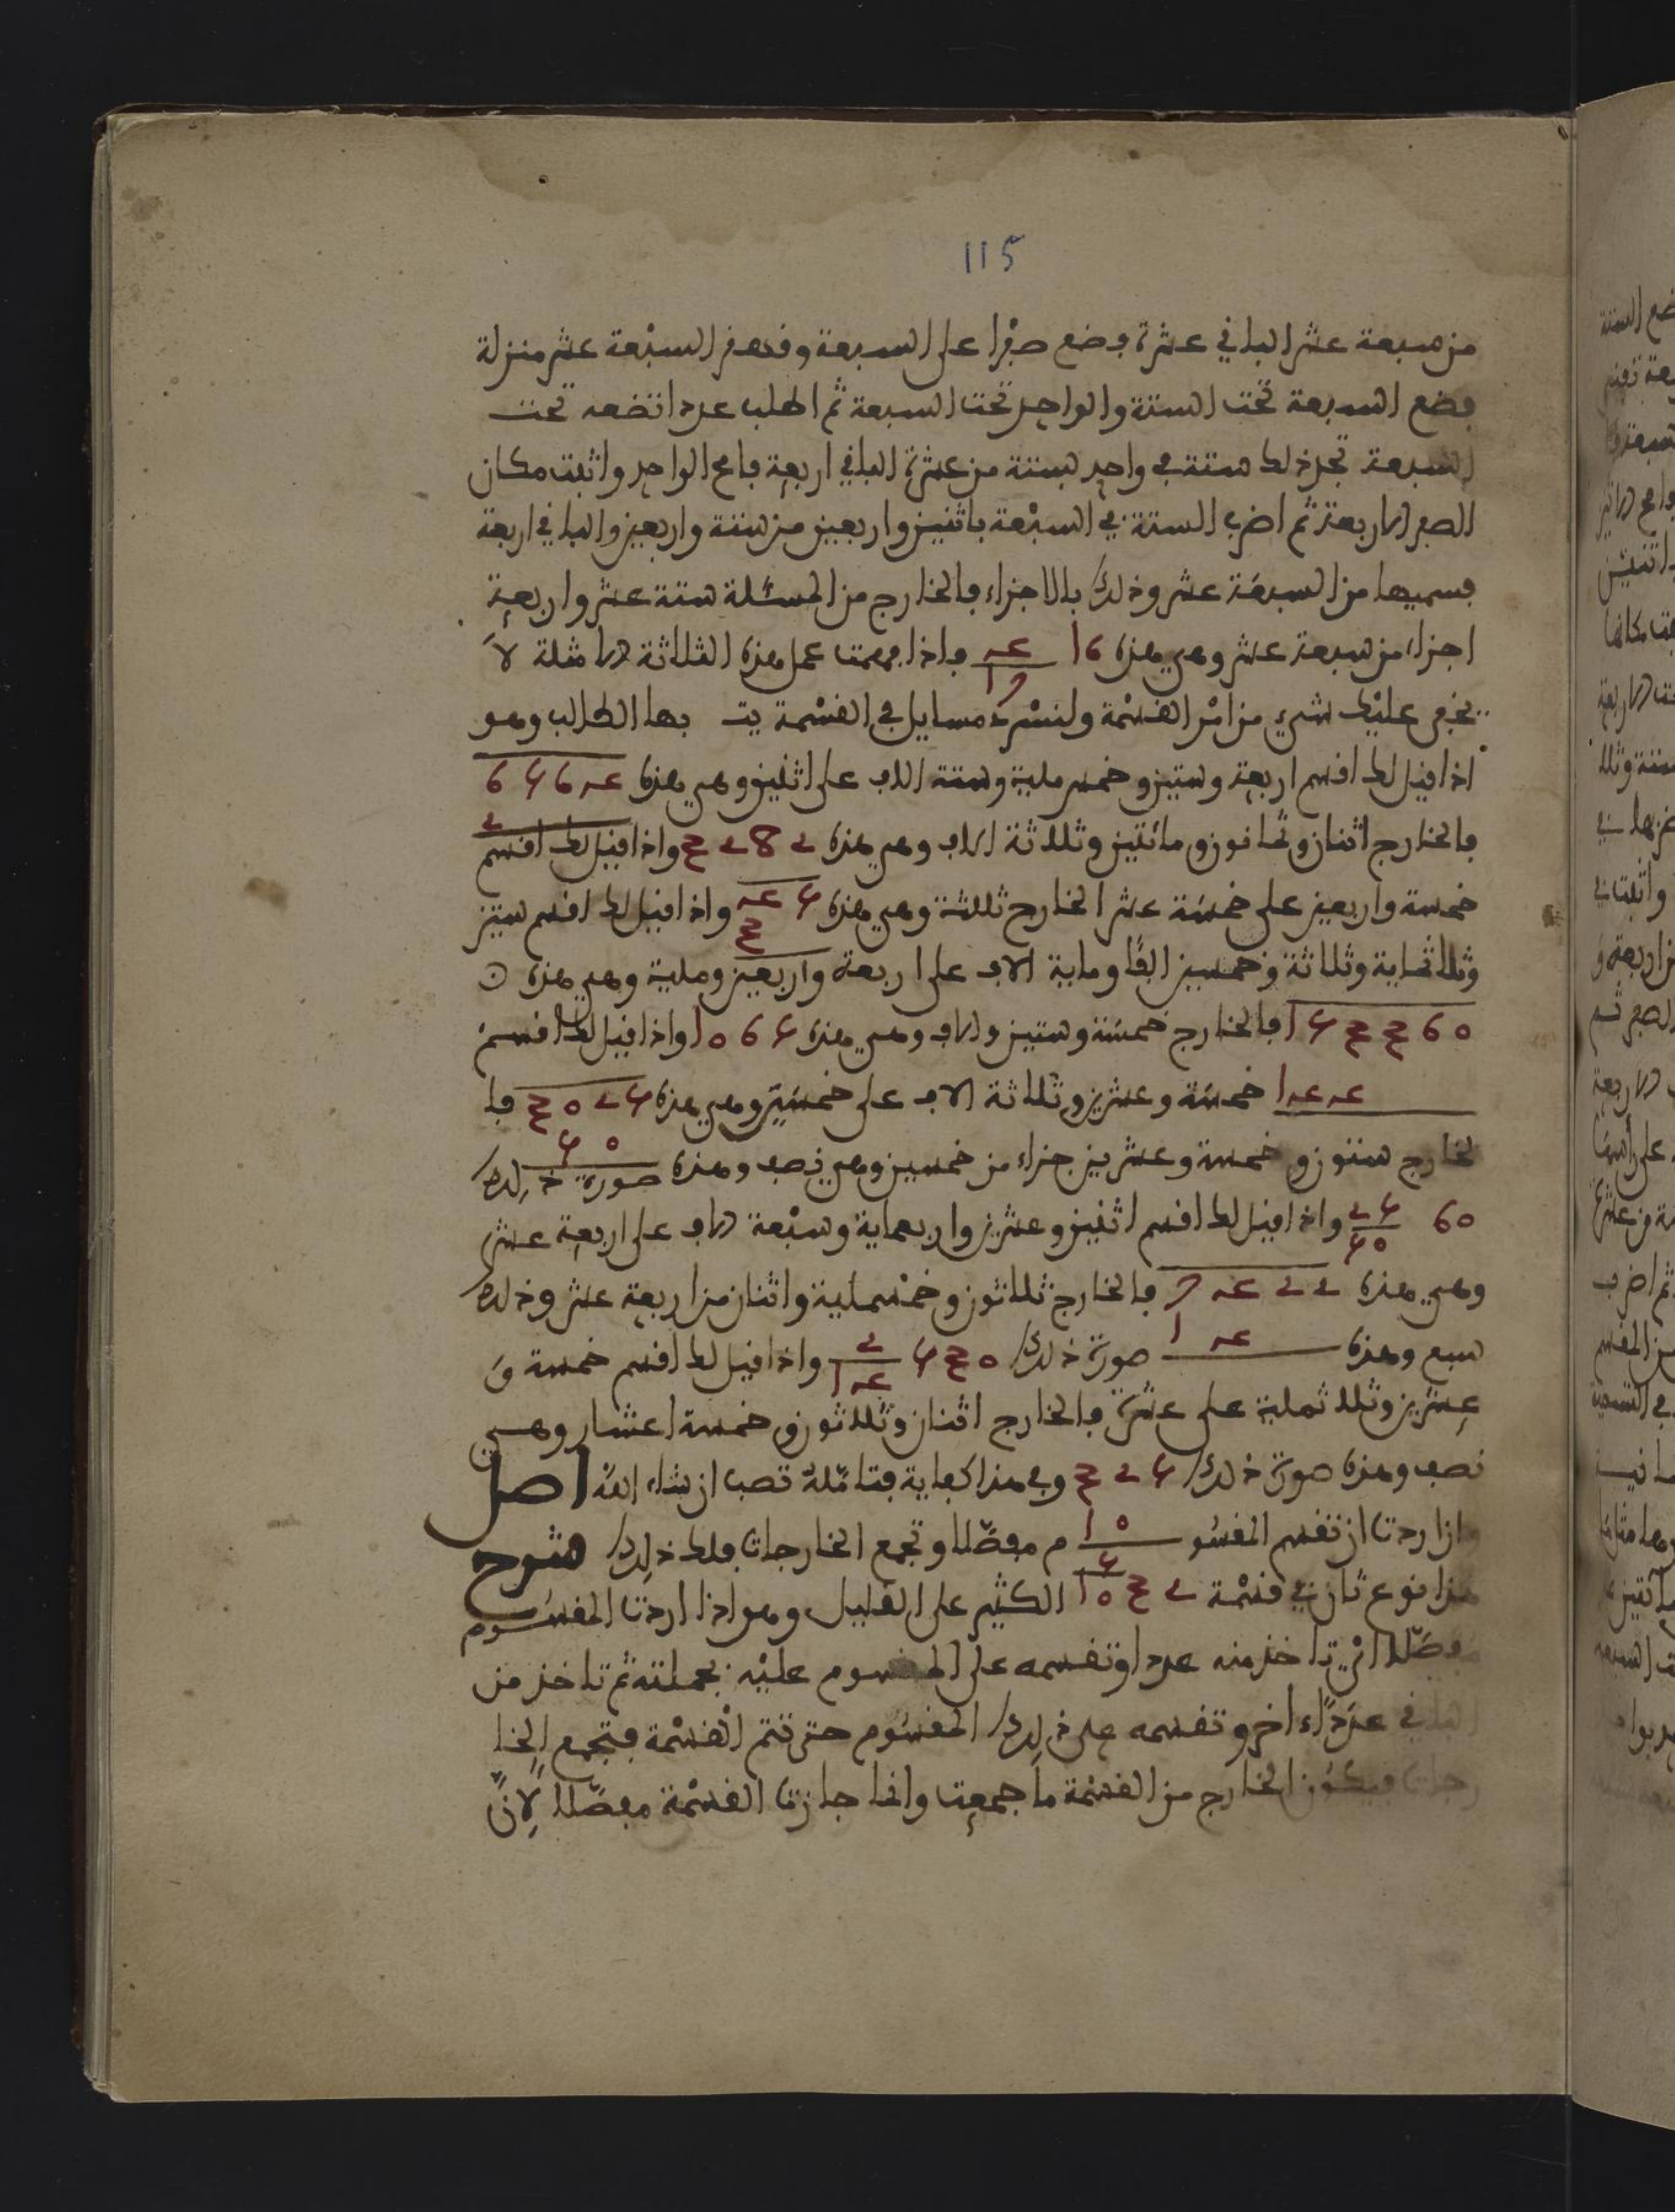 115
من سبعة عشر الباقي عشرة فضع صفرا على السبعة وقهقر السبعة عشر منزلة
فضع السبعة تحت الستة والواحد تحت السبعة ثم اطلب عددا تضعه تحت
السبعة تجد ذلك ستة في واحد بستة من عشرة الباقي اربعة فامح الواحد واثبت مكان
الصفر الاربعة ثم اضرب الستة في السبعة باثنين واربعين من ستة واربعين والباقي اربعة
فسميها من السبعة عشر وذلك بالاجزاء فالخارج من المسئلة ستة عشر واربعة
اجزاء من سبعة عشر وهي هذه 16 4/17 فاذا فهمت عمل هذه الثلاثة الامثلة لا
يخفى عليك شيء من امر القسمة ولنسرد مسايل في القسمة بها الطالب وهو
اذا قيل لك اقسم اربعة وستين وخمسماية وستة الاف على اثنين وهي هذه 6564
2
فالخارج اثنان وثمانون ومائتين وثلاثة الاف وهي هذه 3282 واذا قيل لك اقسم
خمسة واربعين على خمسة عشر الخارج ثلاثة وهي هذه 45 واذا قيل لك اقسم ستين
3
وثلاثماية وثلاثة وخمسين الفا وماية الاف على اربعة واربعين وماية وهي هذه
153360 فالخارج خمسة وستين والف وهي هذه 1065 واذا قيل لك اقسم
144 خمسة وعشرين وثلاثة الاف على خمسين وهي هذه 3025 فا
50
لخارج ستون وخمسة وعشرين جزاء من خمسين وهي نصف وهذه صورة ذلك
60 25/50 واذا قيل لك اقسم اثنين وعشرين واربعماية وسبعة الاف على اربعة عشر
وهي هذه 7422 فالخارج ثلاثون وخمسماية واثنان من اربعة عشر وذلك
سبع وهذه 14 صورة ذلك 530 2/14 واذا قيل لك اقسم خمسة و
عشرين وثلاثماية على عشرة فالخارج اثنان وثلاثون وخمسة اعشار وهي
نصف وهذه صورة ذلك 325 وفي هذا كفاية فتامله تصب ان شاء الله اصل
وان اردت ان تقسم المقسو 10 م مفصلا وتجمع الخارجات فلك ذلك شرح
هذا نوع ثان في قسمة 32 5/10 الكثير على القليل وهو اذا اردت المقسوم
مفصلا اي تاخذ منه عددا وتقسمه على المقسوم عليه بجملته ثم تاخذ من
الباقي عددا اخر وتقسمه على ذلك المقسوم حتى تتم القسمة فتجمع الخا
رجات فيكون الخارج من القسمة ما جمعت وانما جازت القسمة مفصلا لان